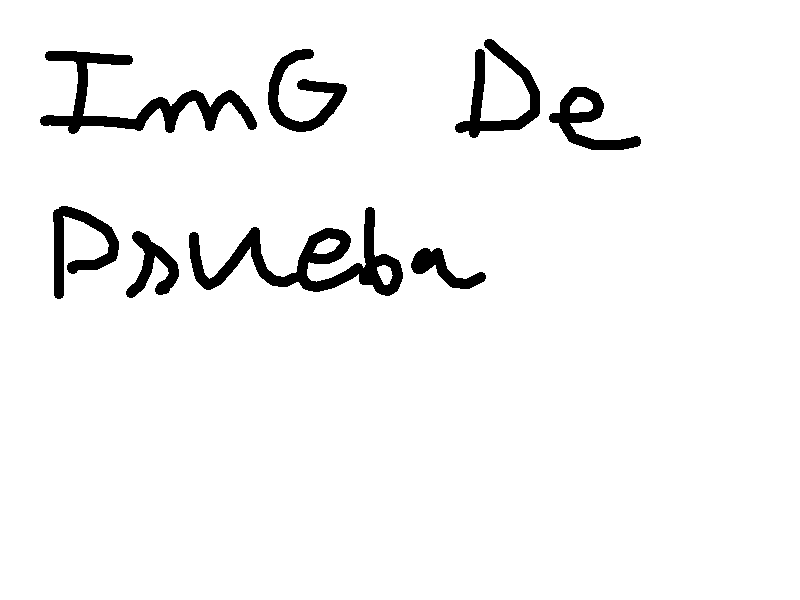 ImG De
Prueba